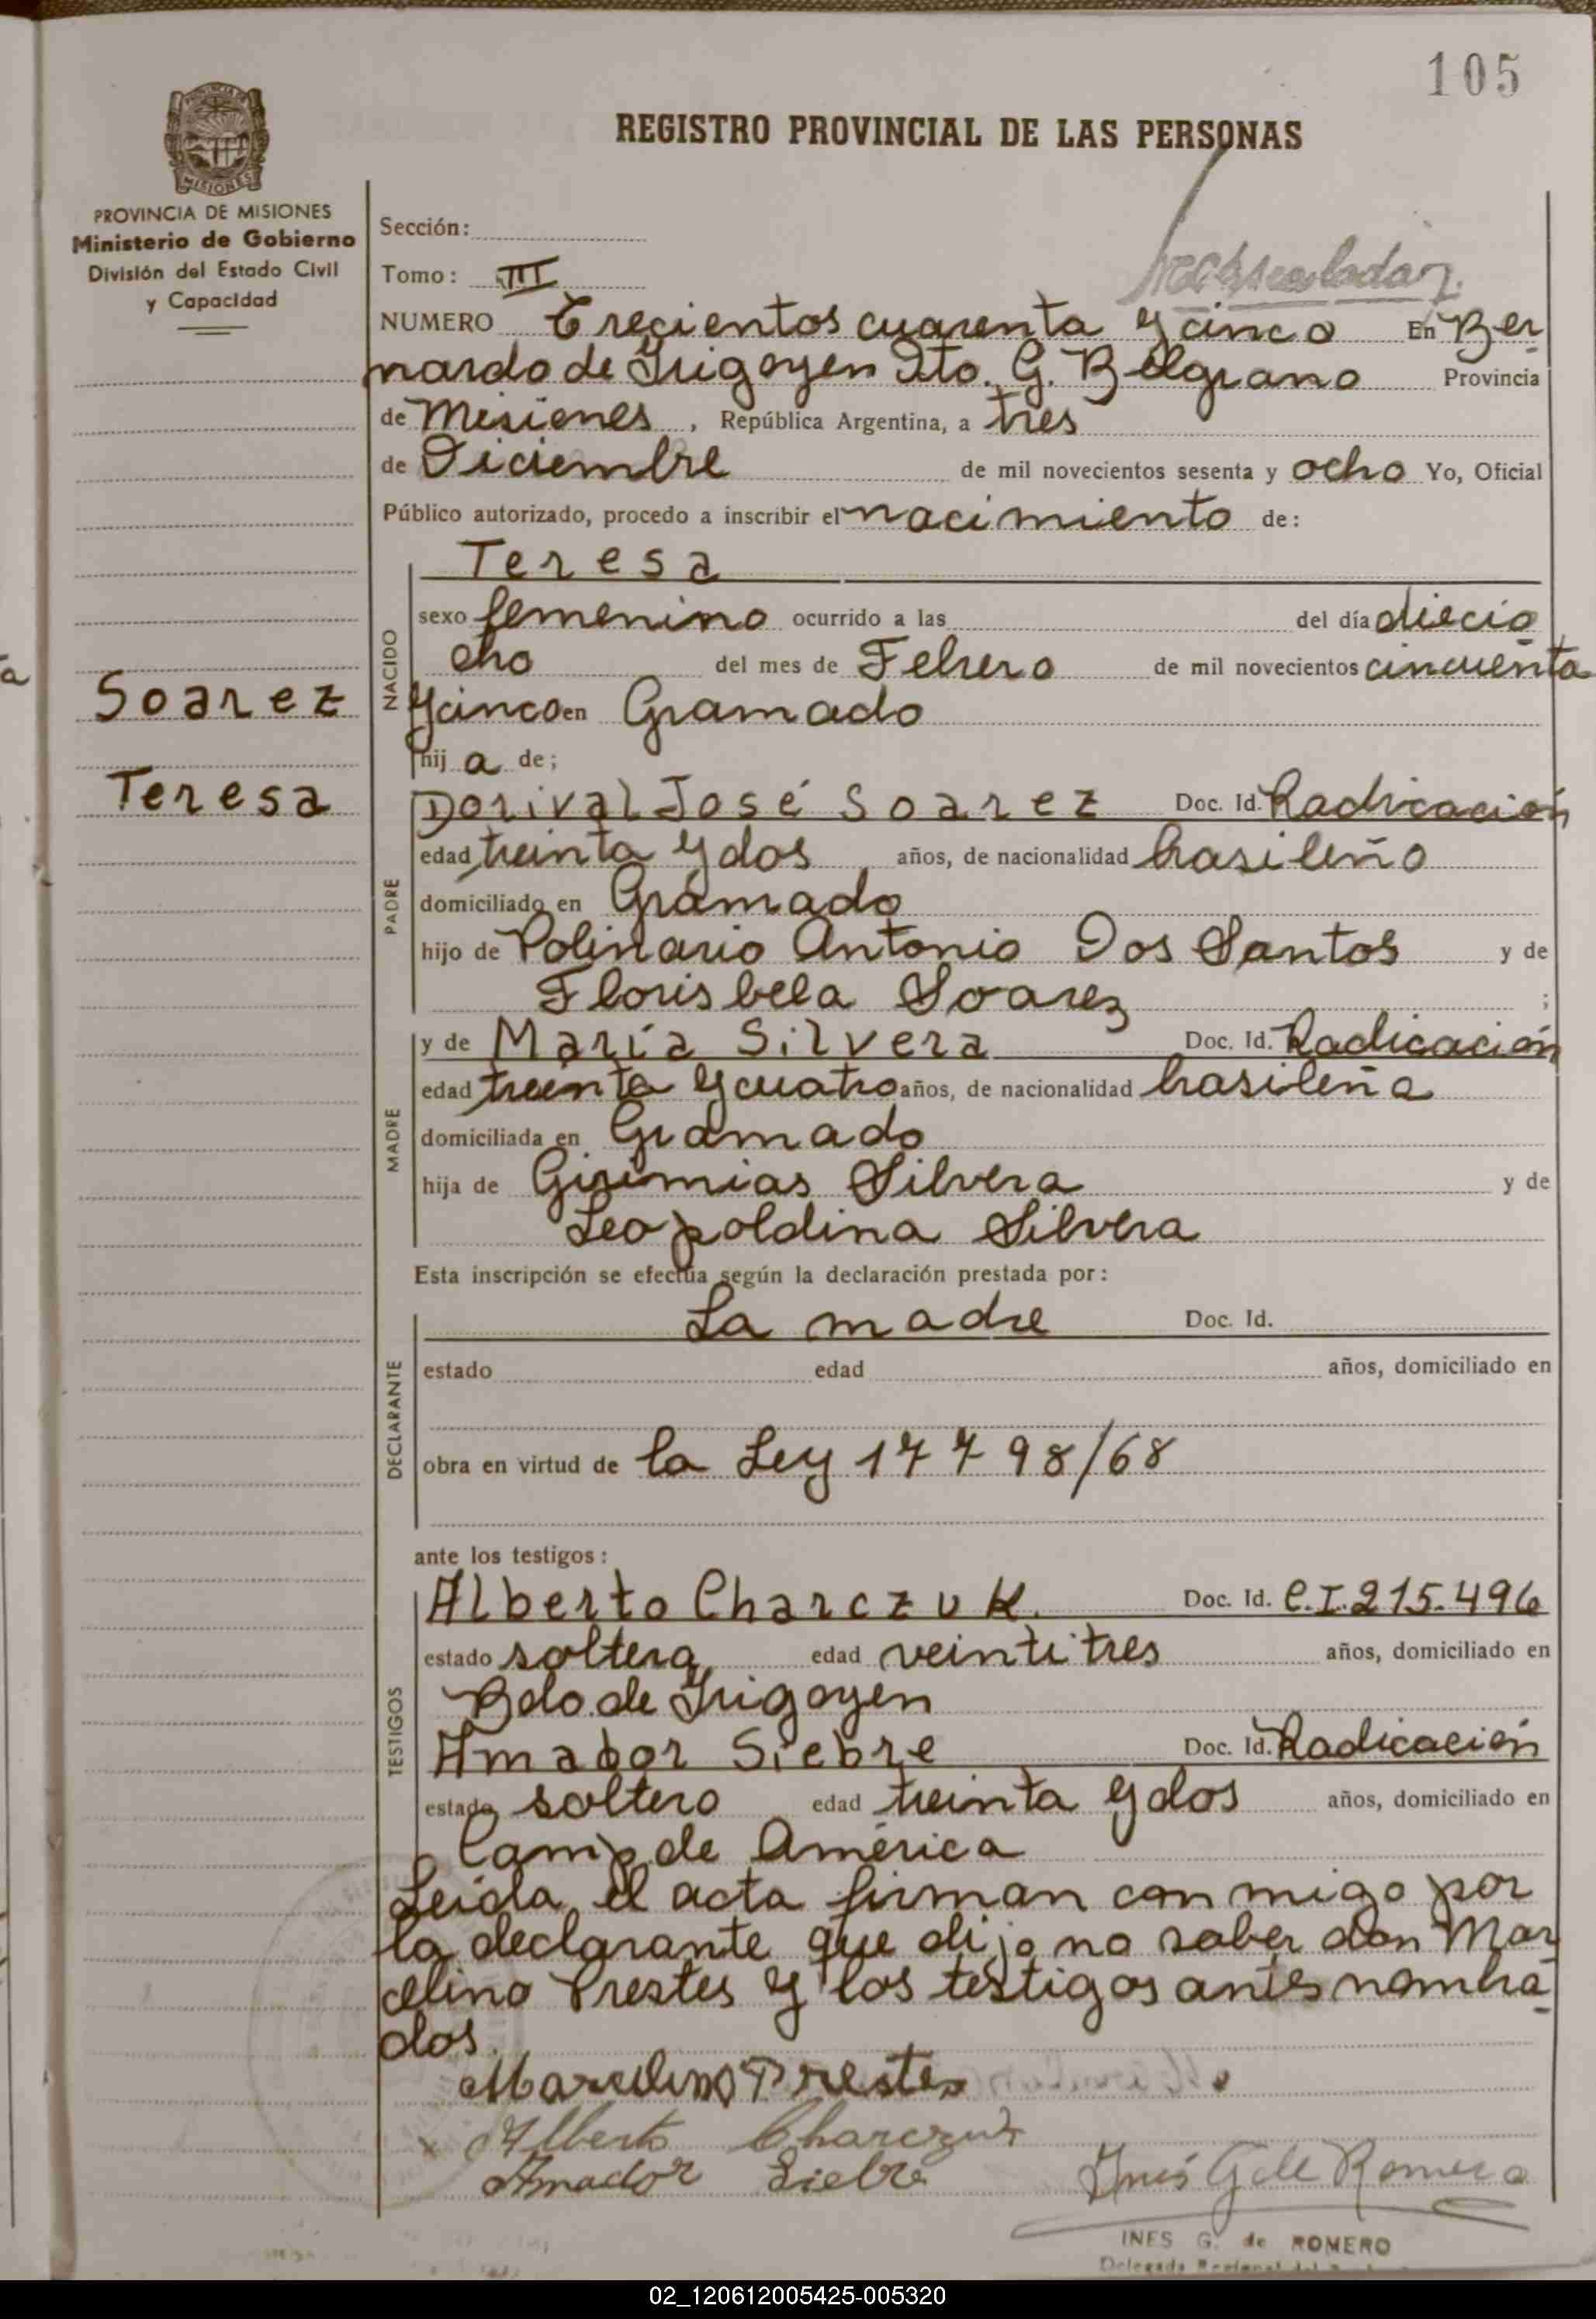 105
REGISTRO PROVINCIAL DE LAS PERSONAS
PROVINCIA DE MISIONES
Ministerio de Gobierno
División del Estado Civil
y Capacidad
Sección:
Tomo: III
NUMERO Trecientos cuarenta y cinco En Ber
nardo de Irigoyen Dto. G. Belgrano Provincia
de Misiones, República Argentina, a tres
de Diciembre de mil novecientos sesenta y ocho Yo, Oficial
Público autorizado, procedo a inscribir el nacimiento de:
Teresa
NACIDO
sexo femenino ocurrido a las del día diecio
cho del mes de Febrero de mil novecientos cincuenta
y cinco en Gramado
hija de;
Soarez
Teresa
PADRE
Dorival José Soarez Doc. Id. Radicación
edad treinta y dos años, de nacionalidad brasileño
domiciliado en Gramado
hijo de Polinario Antonio Dos Santos y de
Florisbela Soarez ;
MADRE
y de María Silvera Doc. Id. Radicación
edad treinta y cuatro años, de nacionalidad brasileña
domiciliada en Gramado
hija de Girimias Silvera y de
Leopoldina Silvera
Esta inscripción se efectúa según la declaración prestada por:
DECLARANTE
La madre Doc. Id.
estado edad años, domiciliado en
obra en virtud de la Ley 17798/68
ante los testigos:
TESTIGOS
Alberto Charczuk. Doc. Id. C.I.215.496
estado soltero edad veintitres años, domiciliado en
Bdo. de Irigoyen
Amador Siebre Doc. Id. Radicación
estado soltero edad treinta y dos años, domiciliado en
Camp. de América
Leida el acta firman conmigo por
la declarante que dijo no saber don Mar
celino Prestes y los testigos antes nombra
dos.
Marcelino Prestes
Alberto Charczuk
Amador Siebre
Inés G de Romero
INES G. de ROMERO
02_120612005425-005320